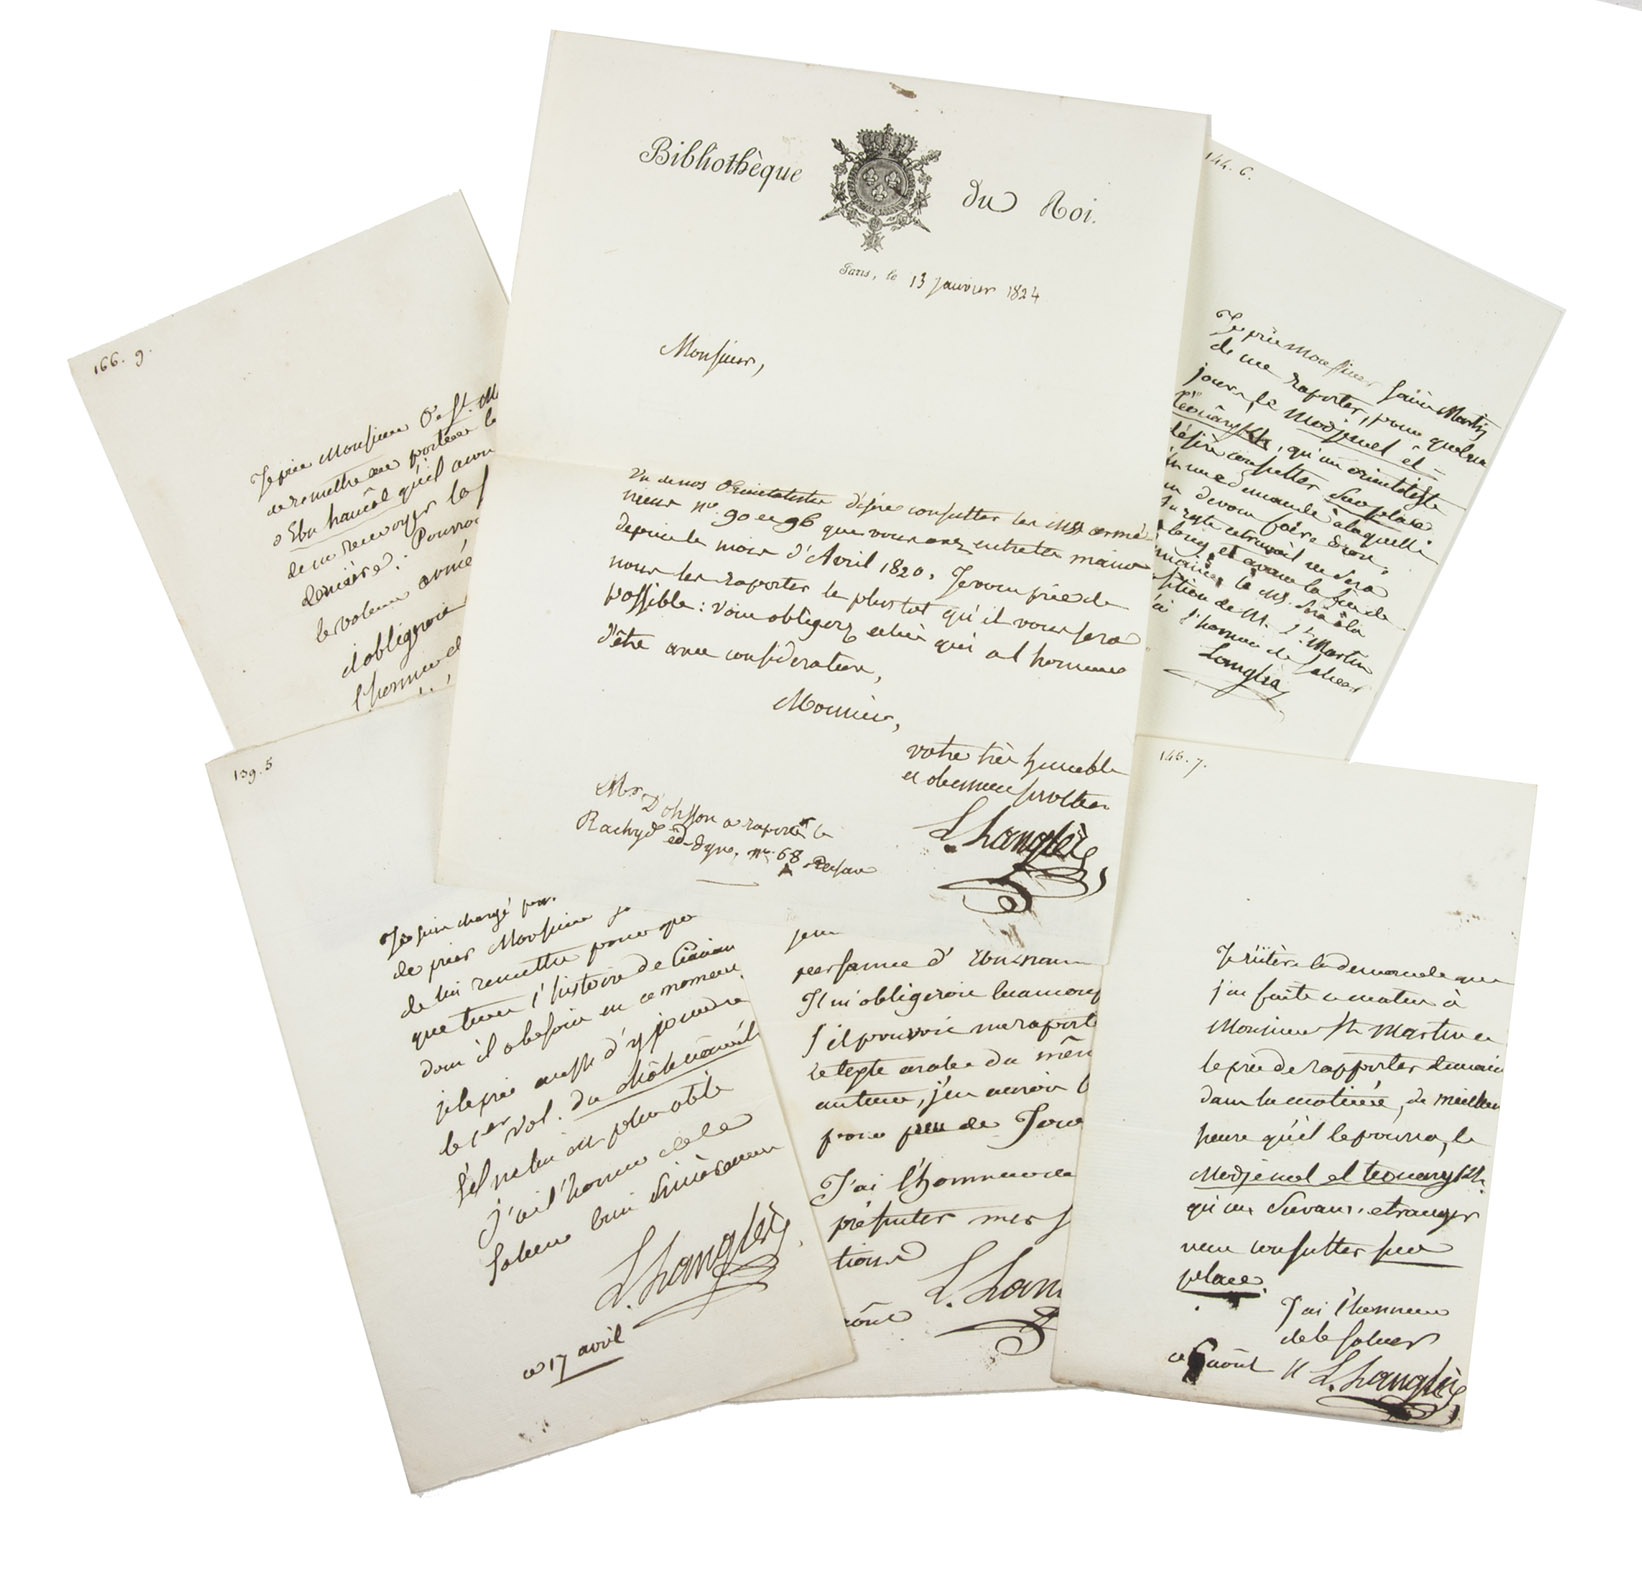 Bibliothèque du Roi.
Paris, le 13 janvier 1824
Monsieur,
Un de nos Orientalistes désire consulter les MSS armé-
niens nos. 90 et 96 que vous avez entre les mains
depuis le mois d'Avril 1820. Je vous prie de
nous les raporter le plustot qu'il vous sera
possible: vous obligerez celui qui a l'honneur
d'être avec consideration,
Monsieur,
votre très humble
et obeissant serviteur
L. Langlès
Mr. D'ohsson a raporté le
Rachyd êd-dyn. no. 68 Persan
166. 9.
Je prie Monsieur de St. M
de remettre au porteur le
d'Ebn haucâl qu'il a
de me renvoyer la
dernière: Pourro
le volume armé
il obligeroit
l'honneur d
144. 6.
Je prie Monsieur Saint Martin
de me raporter, pour quelques
jours, le Modjmel êt-
téouârykh, qu'un orientaliste
désire consulter sur place
une demande à laquelle
devons faire droit,
travail ne sera
long et avant la fin de
le MS. sera à la
sition de M. St. Martin
l'honneur de saluer
Langlès
139. 5
Je suis chargé par
de prier Monsieur
de lui remettre pour
que tems l'histoire de
dont il a besoin en ce moment.
je le prie aussi d'y joindre
le 1er vol. du châhnâmêh
s'il ne lui est plus utile
j'ai l'honneur de le
saluer bien sincèrement
L. Langlès
ce 17 avril
persanne d'Ebn
Il m'obligeroit beaucoup
s'il pouvoit me raport
le texte arabe du mêm
auteur, j'en aurois b
pour peu de Jour
J'ai l'honneur de
présenter mes s
tions
L. Lan
août
146. 7.
Je réitère la demande que
j'ai faite ce matin à
Monsieur St Martin et
le prie de rapporter demain
dans la matinée, de meilleure
heure qu'il le pourra, le
Modjmel el téouarykh.
qu'un Savant étranger
veut consulter sur
place.
J'ai l'honneur
de le saluer
ce 6 août L. Langlès